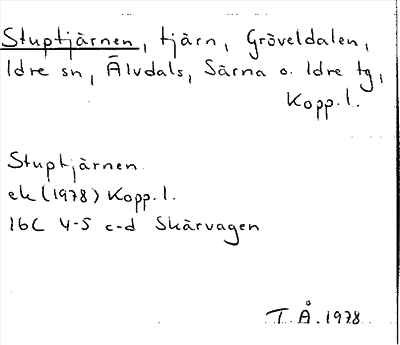 Stuptjärnen, tjärn, Gröveldalen,
Idre sn, Älvdals, Särna o. Idre tg,
Kopp. l.
Stuptjärnen
ek (1978) Kopp. l.
16C 4-5 c-d Skärvagen
T.Å. 1978